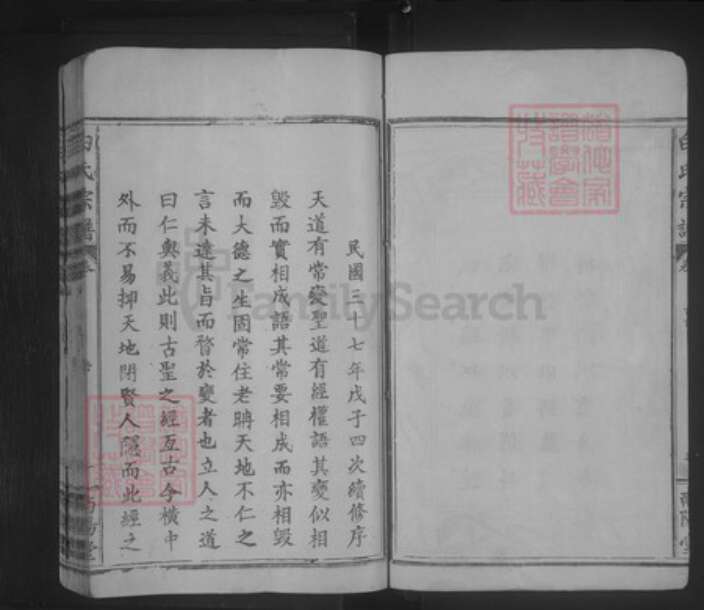 民國三十七年戊子四次續修序
天道有常變聖道有經權語其變似相
毀而實相成語其常要相成而亦相毀
而大德之生固常住老聃天地不仁之
言未達其旨而瞀於變者也立人之道
曰仁與義此則古聖之經亙古今橫中
外而不易抑天地閉賢人隱而此經之
氏宗譜
FamilySearch